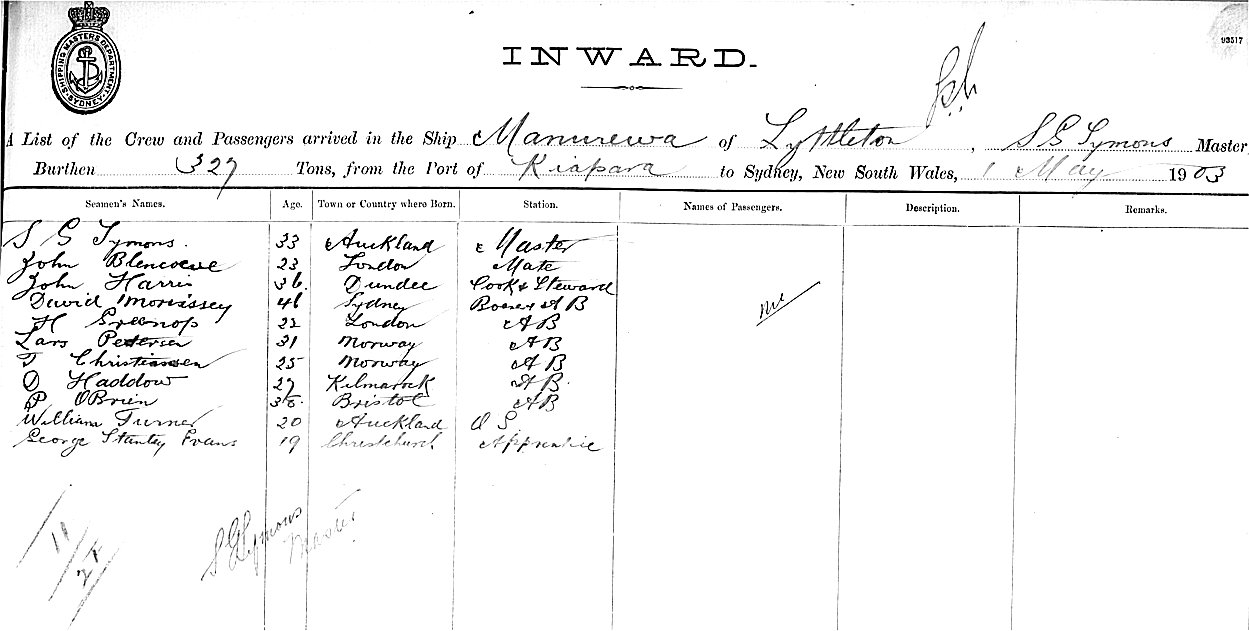 SHIPPING MASTERS DEPARTMENT. SYDNEY
93517
INWARD.
A List of the Crew and Passengers arrived in the Ship Manurewa of Lyttleton, S G Symons Master
Burthen 327 Tons, from the Port of Kiapara to Sydney, New South Wales, 1 May 1903
Seamen's Names. Age. Town or Country where Born. Station. Names of Passengers. Description. Remarks.
S G Symons. 33 Auckland Master
John Blencowe 23 London Mate
John Harris 36. Dundee Cook & Steward
David Morrissey 46 Sydney A B
H Greenop 22 London A B
Lars Petersen 31 Norway A B
T Christiansen 25 Norway A B
D Haddow 27 Kilmarock A B.
P OBrien Bristol A B
William Turner 20 Auckland O S.
George Stanley Evans 19 Christchurch Apprentice
S G Symons
Master
11